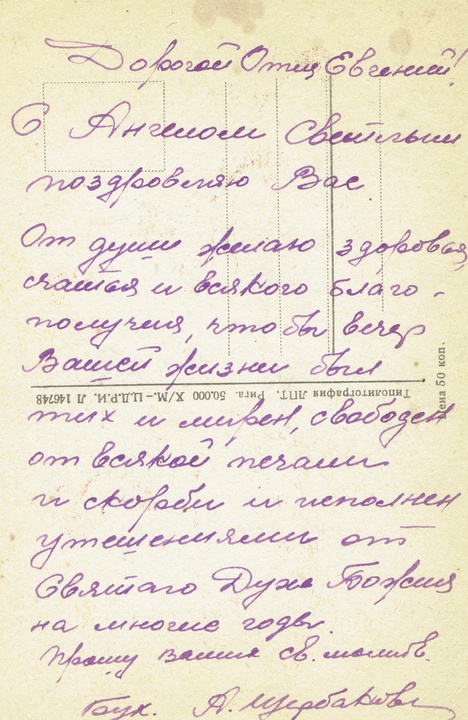 Дорогой Отец Евгений!
С Ангелом Светлым
поздровляю Вас
От души желаю здоровья,
счастья и всякого благо-
получия, что бы вечер
Вашей жизни был
тих и мирен, свободен
от всякой печали
и скорби и исполнен
утешениями от
Святаго Духа Божия
на многие годы.
Прошу ваших св. молитв.
А. Щербакова
Типолитография ЛПТ, Рига. 50.000 X/M.-Ц.Д.Р.И. Л 146748
Цена 50 коп.